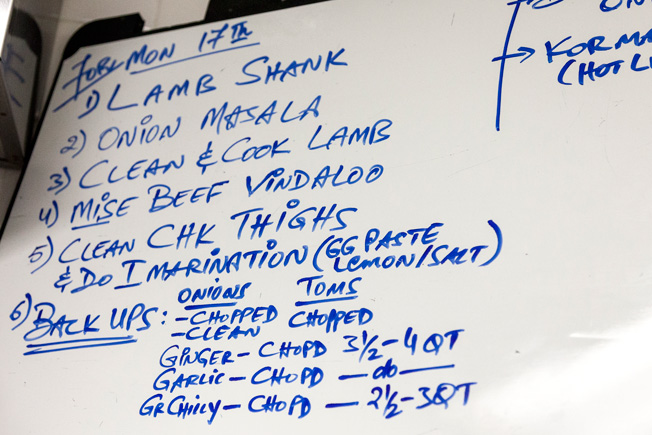 FOR MON 17TH
1) LAMB SHANK
2) ONION MASALA
3) CLEAN & COOK LAMB
4) MISE BEEF VINDALOO
5) CLEAN CHK THIGHS
& DO I MARINATION (GG PASTE
LEMON/SALT)
6) BACK UPS:
ONIONS TOMS
-CHOPPED CHOPPED
-CLEAN
GINGER - CHOPD 3 1/2 - 4 QT
GARLIC - CHOPD - do -
GR CHILLY - CHOPD - 2 1/2 - 3QT
ON
→ KORMA
(HOT LI